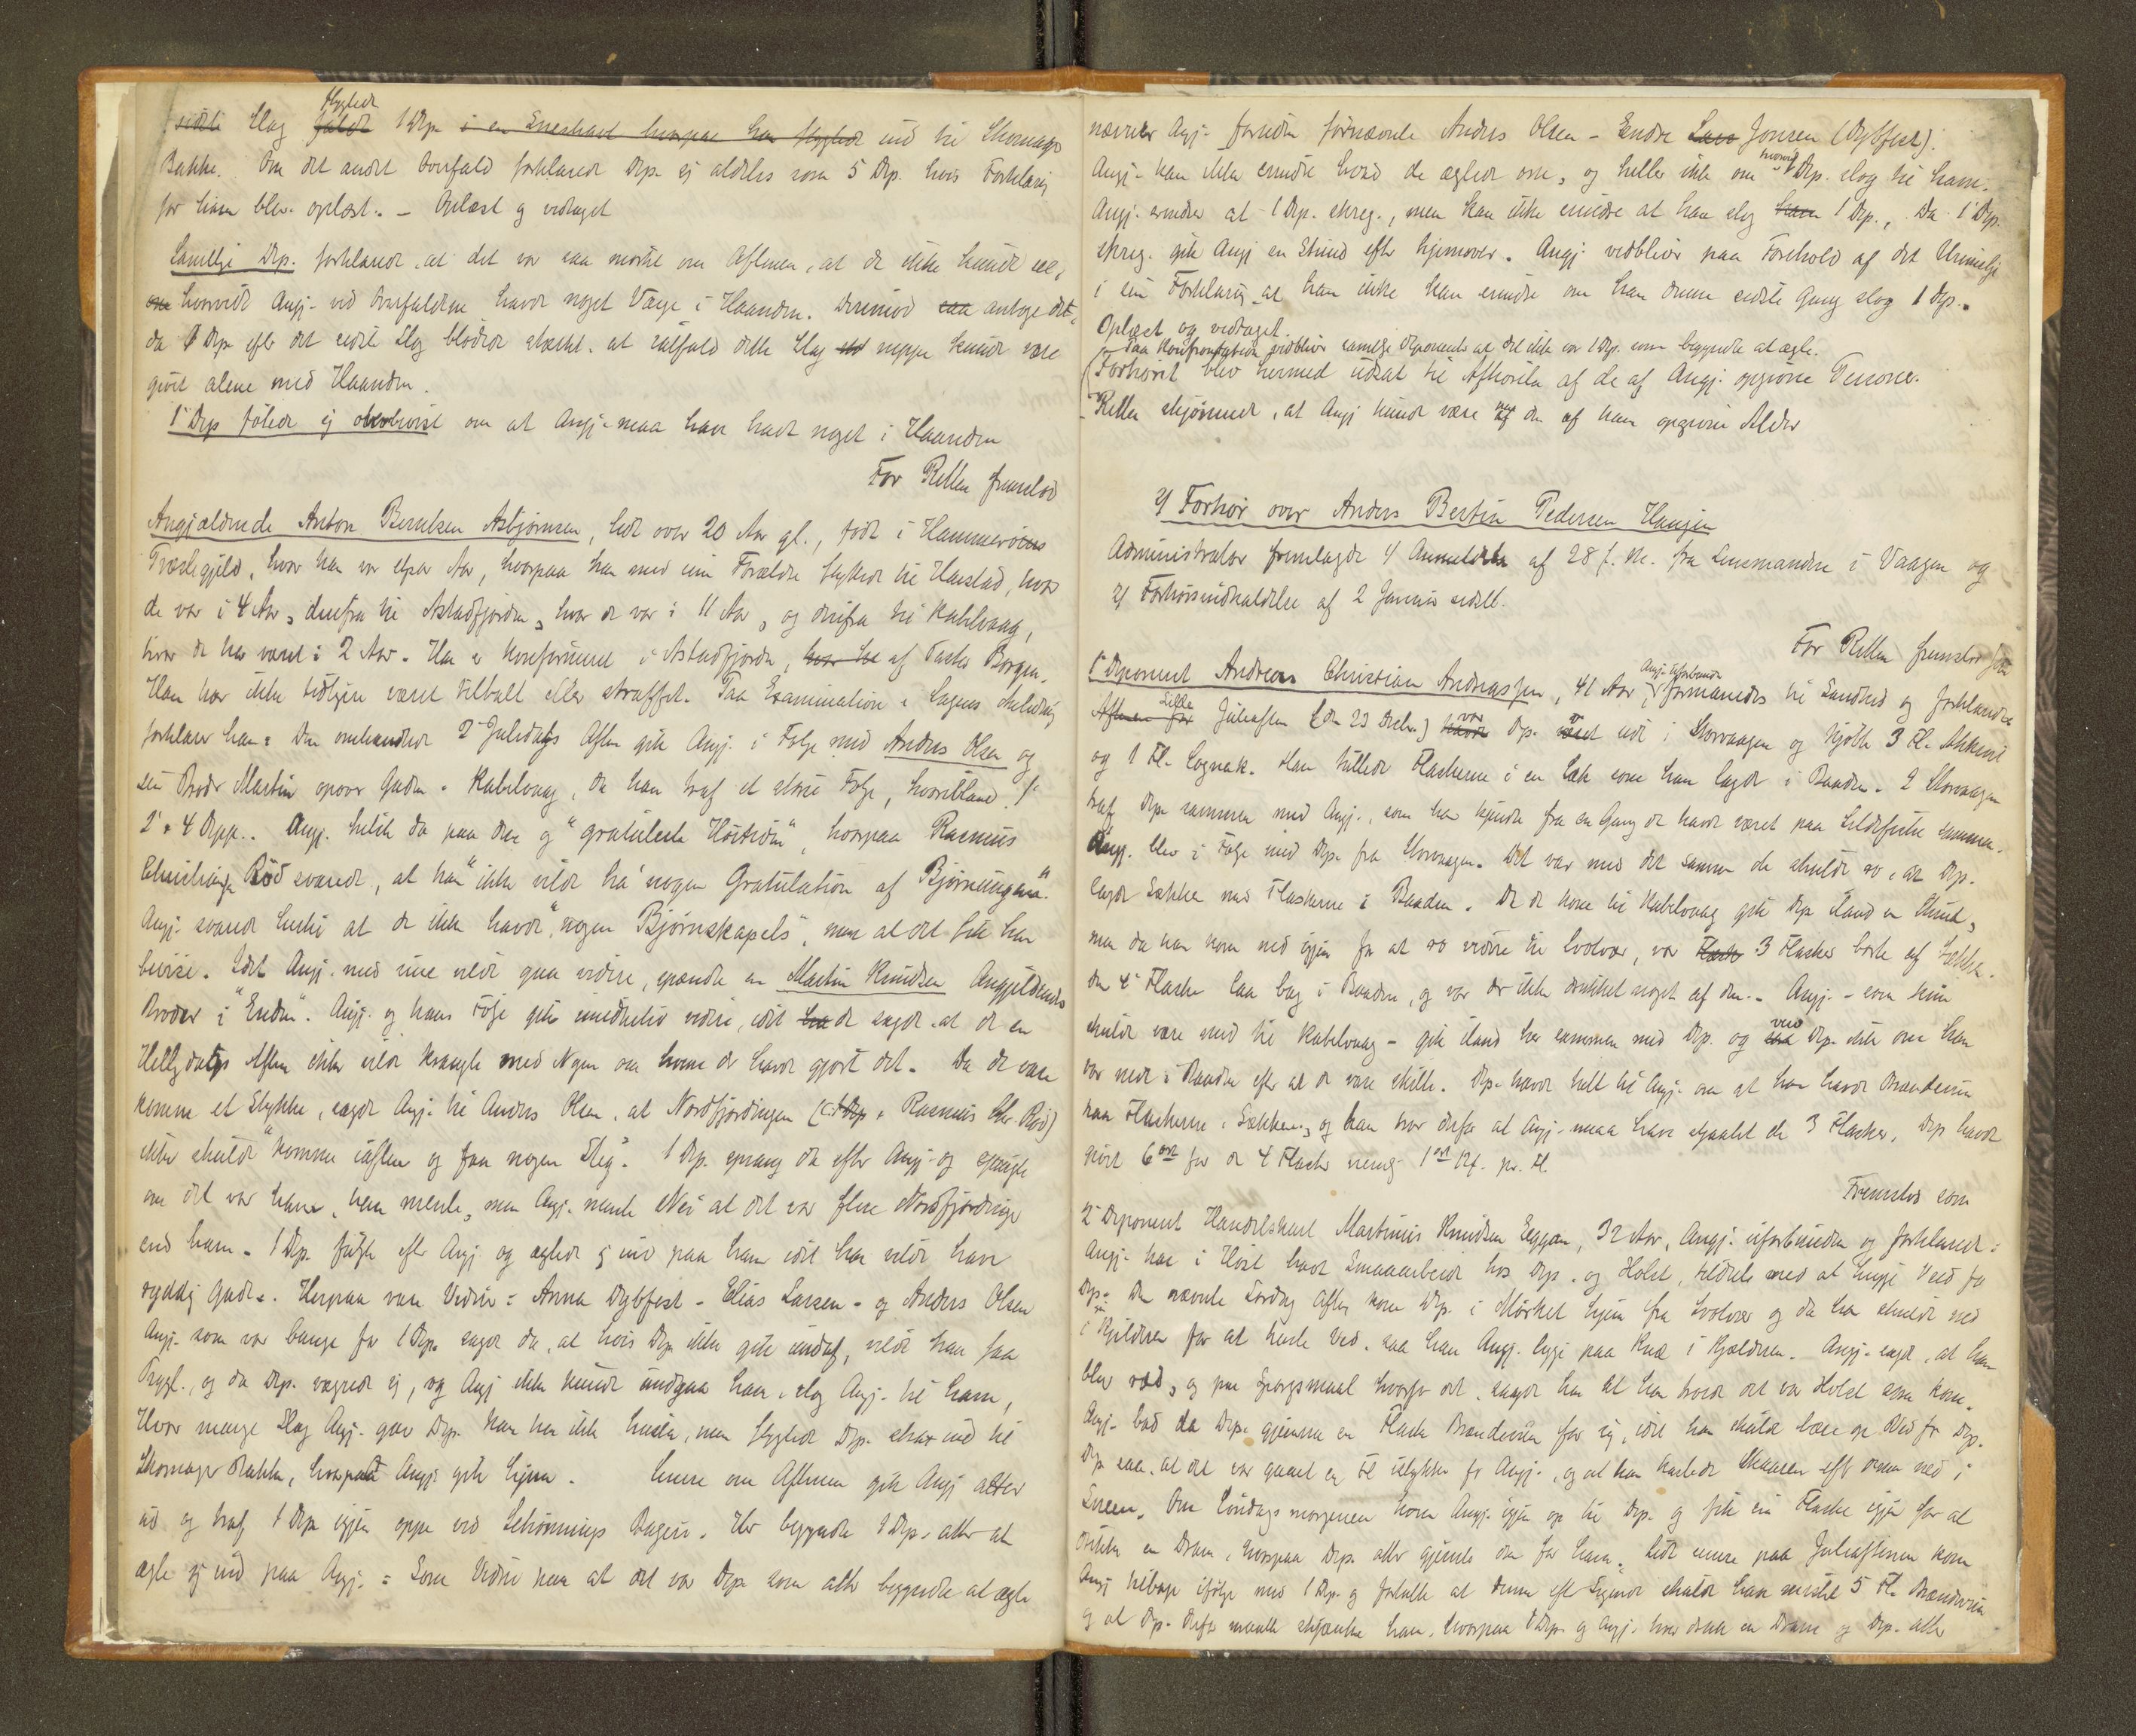 sidste Slag faldt flygtede 1 Dep. i en Sneskavl hvorpaa han flygtede ind til Skomager
Bakke. Om det andet Overfald forklarede Dep. sig aldeles som 5 Dep. hvis Forklaring
for ham blev oplæst. - Oplæst og vedtaget
Samtlige Dep. forklarede, at det var saa mørkt om Aftenen, at de ikke kunde see,
om hvorvidt Angj. ved Overfaldene havde noget Vaage i Haanden. Derimod saa antoge de,
da 1 Dep. efter det sidste Slag blødede stærkt, at ialfald dette Slag neppe kunde være
givet alene med Haanden.
1' Dep følede sig overbevist om at Angj. maa have havt noget i Haanden
For Retten fremstod
Angjældende Anton Berntsen Asbjørnsen, lidt over 20 Aar gl., født i Hammerøens
Præstegjeld, hvor han var et par Aar, hvorpaa han med sine Forældre flyttede til Harstad, hvor
de var i 4 Aar, derfra til Astadfjorden, hvor de var i 11 Aar, og derfra til Kabelvaag,
hvor de har været i 2 Aar. Han er konfirmeret i Astadfjorden, af Pastor Borgen.
Han har ikke tidligere været tiltalt eller straffet. Paa Examination i Sagens Anledning
forklarer han: Den omhandlede 2' Juledags Aften gik Angj. i Følge med Anders Olsen og
sin Broder Martin opover Gaden i Kabelvaag, da han traf et større Følge, hvoriblandt 1'
2' & 4 Depp.. Angj. hilste da paa dem og "gratulerte Høitiden", hvorpaa Rasmus
Christiansen Rød svarede, at han "ikke vilde ha' nogen Gratulation af Bjørnungene".
Angj. svarede hertil at de ikke havde "nogen Bjørneskapels", men at det fik han
bevise. Idet Angj. med sine vilde gaa videre, spændte en Martin Knudsen Angjeldendes
Broder i "Enden". Angj. og hans Følge gik imidlertid videre, idet de sagde at de en
Helligdags Aften ikke vilde krangle med Nogen om hvem der havde gjort det. Da de vare
komne et Stykke, sagde Angj. til Anders Olsen, at Nordfjordingen (Rasmus Chr. Rød)
ikke skulde "komme iaften og faa nogen Steg". 1 Dep. sprang da efter Angj. og spurgte
om det var ham, han mente, men Angj. mente Nei at det var flere Nordfjordinger
end ham. 1 Dep. fulgte efter Angj og æglede sig ind paa ham idet han vilde have
ryddig Gade. Herpaa vare Vidner: Anna Dybfest - Elias Larsen - og Anders Olsen
Angj. som var bange for 1 Dep. sagde da, at hvis Dep. ikke gik indaf, vilde han faa
Prygl, og da Dep. vægrede sig, og Angj ikke kunde undgaa ham, slog Angj. til ham,
Hvor mange Slag Angj. gav Dep. kan han ikke huske, men flygtede Dep. strax ind til
Skomager Bakke, hvorpaa Angj. gik hjem. Senere om Aftenen gik Angj atter
ud og traf 1 Dep igjen oppe ved Schønnings Bageri. Her begyndte 1 Dep. atter at
ægle sig ind paa Angj. = Som Vidne paa at det var Dep. som atter begyndte at ægle
nævner Angj. foruden førnævnte Anders Olsen - Endre Lars Jonsen (Dybfest).
Angj. kan ikke erindre hvad de æglede om, og heller ikke om hvorvidt Dep. slog til ham.
Angj. erindrer at 1 Dep. skreg, men kan ikke erindre at han slog ham 1 Dep., Da 1' Dep.
skreg, gik Angj en Stund efter hjemover. Angj. vedbliver paa Forehold af det Urimelige
i sin Forklaring, at han ikke kan erindre om han denne sidste Gang slog 1 Dep..
Oplæst og vedtaget.
Paa Konfrontation vedbliver samtlige Deponenter at det ikke var 1 Dep. som begyndte at ægle.
Forhøret blev hermed udsat til Afhørelse af de af Angj. opgivne Personer.
Retten skjønnede, at Angj kunde være af den af ham opgivne Alder
2/ Forhør over Anders Bertin Pedersen Haugen
Administrator fremlagde 1/ Anmeldelse af 28 f. M. fra Lensmanden i Vaagen og
2/ Forhørsindkaldelse af 2 Januar sidstl.
For Retten fremstod som
1' Deponent Andreas Christian Andreassen, 41 Aar, Angj. uforbunden formanedes til Sandhed og forklarede
Aftenen før Lille Juleaften (den 23 Decbr.) havde var Dep. ude i Storvaagen og kjøbte 3 Fl. Akkevit
og 1 Fl. Cognak. Han puttede Flaskerne i en Sæk som han lagde i Baaden. I Storvaagen
traf Dep. sammen med Angj., som han kjendte fra en Gang de havde været paa Sildefiske sammen.
Angj. blev i Følge med Dep. fra Storvaagen. Det var med det samme de skulde ro, at Dep.
lagde Sækken med Flaskerne i Baaden. Da de kom til Kabelvaag gik Dep iland en Stund,
men da han kom ned igjen for at ro videre til Svolvær, var Flask 3 Flasker borte af Sækken.
den 4' Flaske laa bag i Baaden, og var der ikke drukket noget af den. Angj. - som kun
skulde være med til Kabelvaag - gik iland her sammen med Dep. og ved Dep. ikke om han
var nede i Baaden efter at de vare skilte. Dep. havde talt til Angj. om at han havde Brændevin
paa Flaskerne i Sækken, og han tror derfor at Angj. maa have stjaalet de 3 Flasker. Dep havde
givet 6 ort for de 4 Flasker nemlig 1 ort 12 s. pr. Fl.
Fremstod som
2' Deponent Handelskarl Martinus Knudsen Eggan, 32 Aar, Angj. uforbunden og forklarede:
Angj. har i Høst havt Smaaarbeide hos Dep. og Holst, tildels med at hugge Ved for
Dep. Den nævnte Lørdag Aften kom Dep. i Mørket hjem fra Svolvær og da han skulde ned
i Kjelderen for at hente Ved, saa han Angj. ligge paa Knæ i Kjælderen. Angj. sagde, at han
blev ræd, og paa Spørgsmaal hvorfor det, sagde han at han troede det var Holst som kom.
Angj. bad da Dep. gjemme en Flaske Brændevin for sig, idet han skulde bære op Ved for Dep.
Dep saa, at det var gaaet en Fl istykker for Angj., og at han kastede Skaarene efter den ned i
Sneen. Om Søndagsmorgenen kom Angj. igjen op til Dep. og fik sin Flaske igjen for at
drikke en Dram, hvorpaa Dep. atter gjemte den for ham. Lidt senere paa Juleaftenen kom
Angj tilbage ifølge med 1 Dep. og fortalte at denne efter Sigende skulde have mistet 5 Fl. Brændevin
og at Dep. derfor maatte skjænke ham, hvorpaa 1 Dep. og Angj. hver drak en Dram og Dep. atter